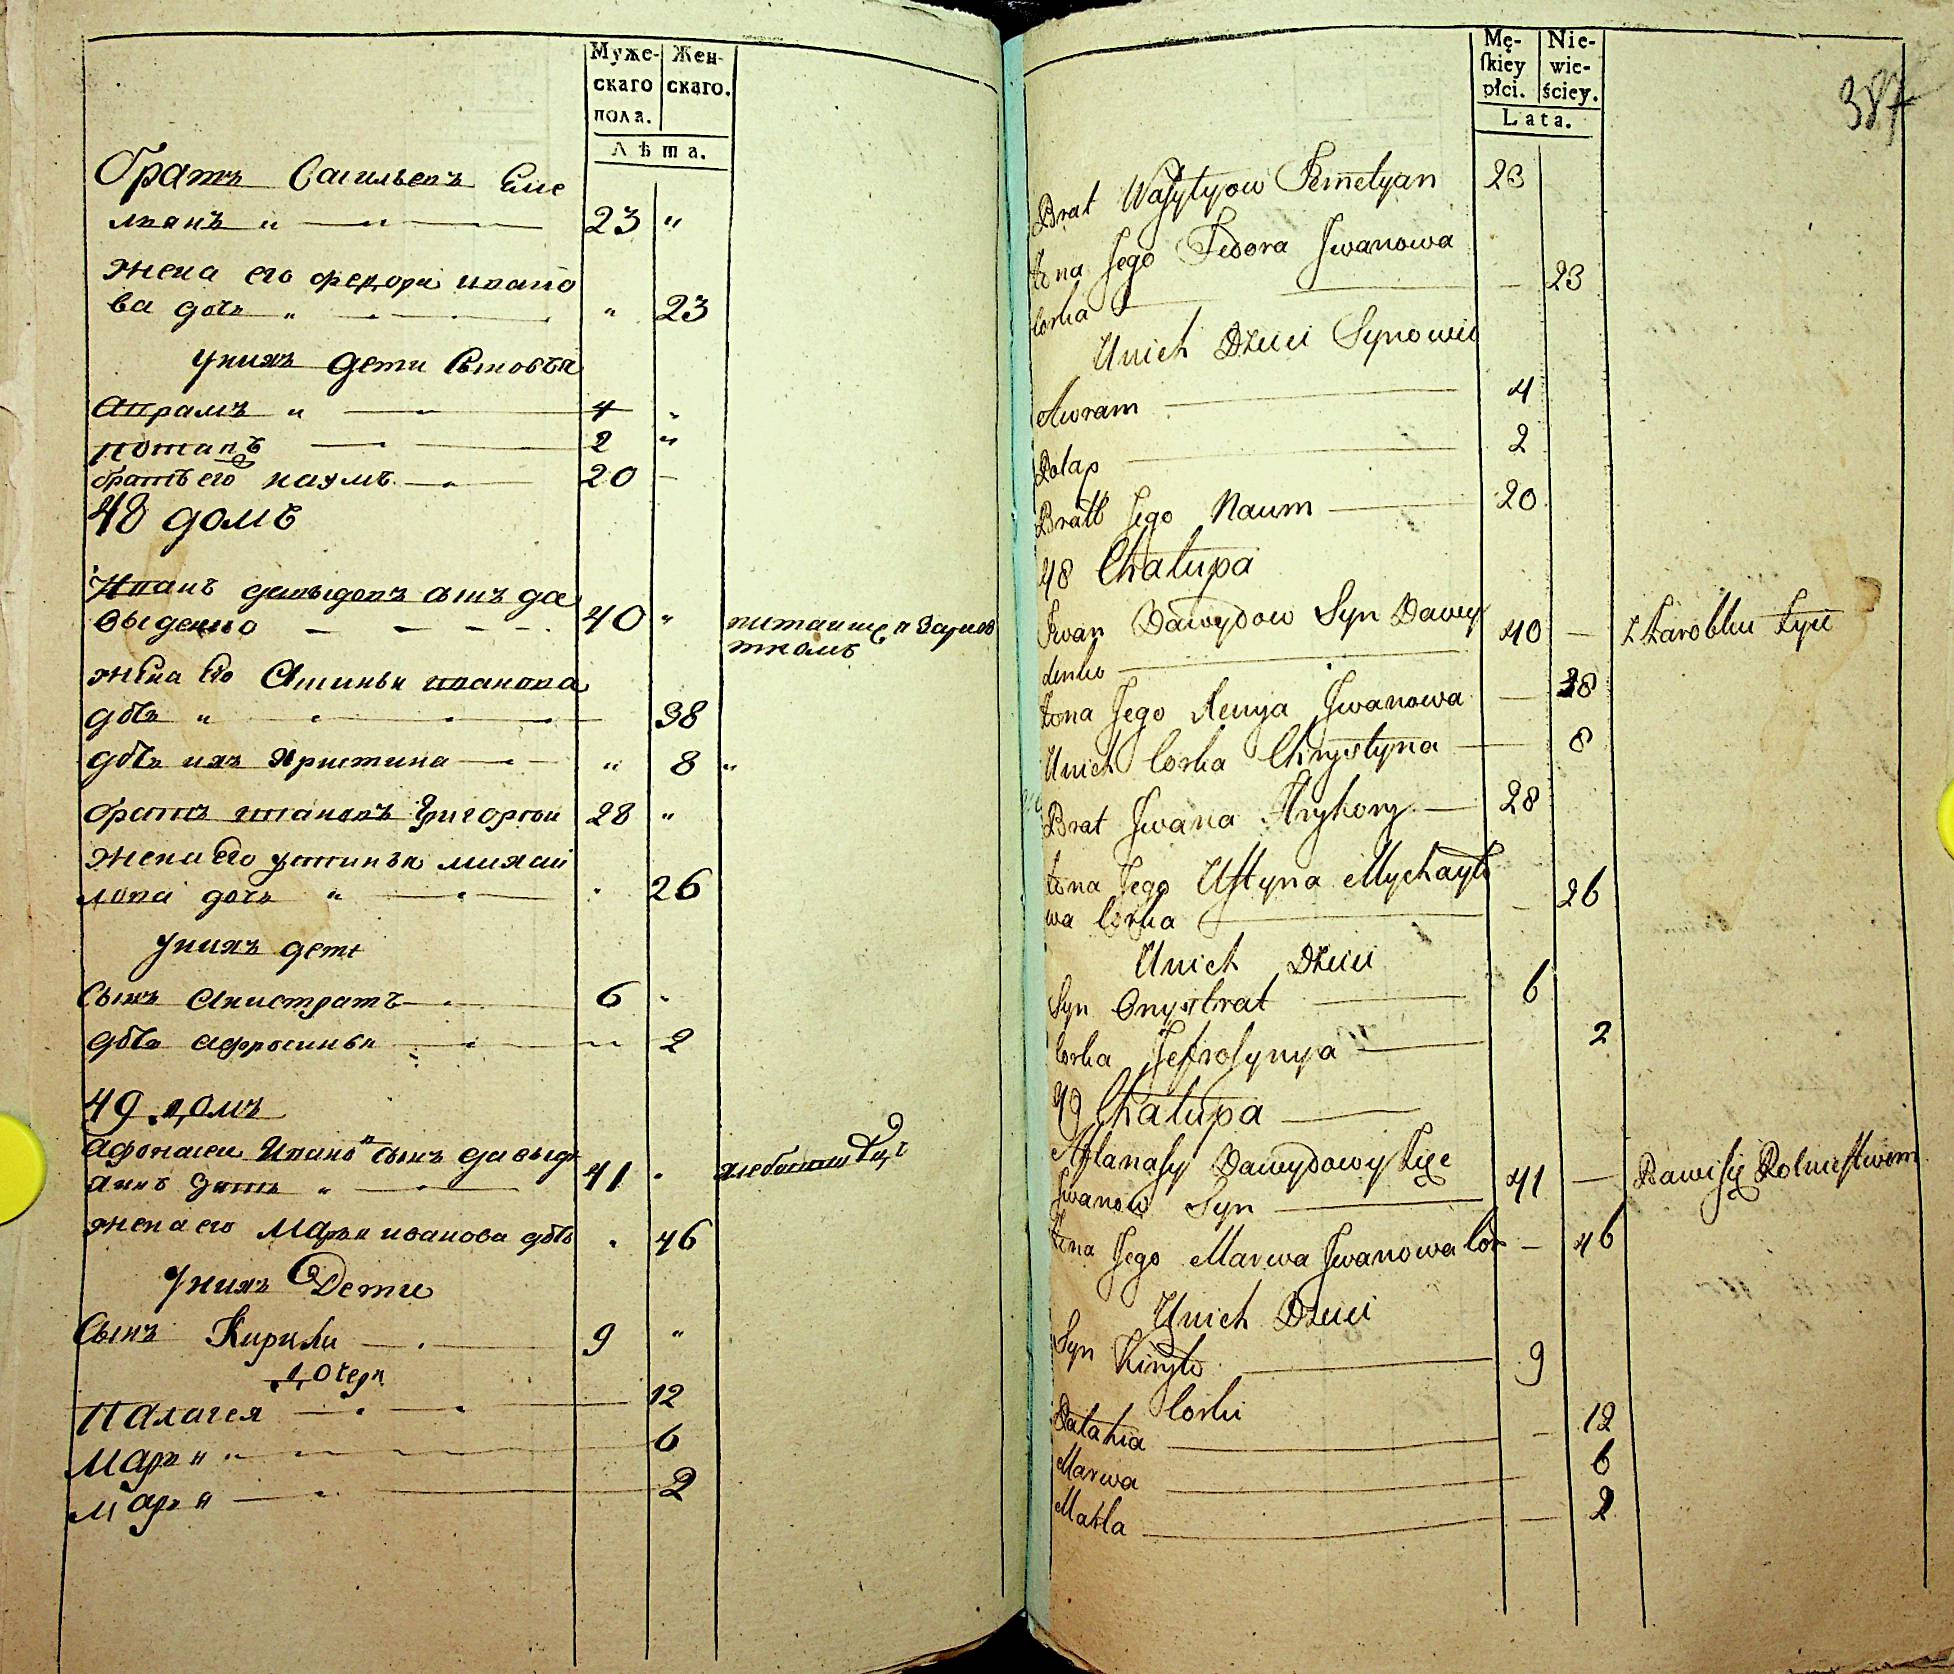 Муже- Жен-
скаго скаго.
пола.
Лѣта.
братъ Васильевъ Еме
лианъ " 23 "
жена его федора ивано
ва дочь " " 23
у нихъ дети
Аврамъ " 4 "
потапъ 2 "
братъ его наумъ 20
48 домъ
Иванъ давыдовъ сынъ да
выденко 40 " питаице
жена Его ивановна
дочь " 38
дочь ихъ христина " 8 "
братъ Григорои 28 "
жена его устинья михаи
лова дочь " " 26
у нихъ дети
Сынъ Анистратъ 6 "
дочь афросинья 2
49 домъ
Афонасеи Ивановъ сынъ
41 "
жена его Марья иванова дочь " 46
у нихъ Дети
Сынъ Кирила 9 "
дочеря
Палагея 12
Марья " 6
марья 2
Mę- Nie-
ſkiey wie-
płci. ściey.
Lata.
387
Brat Waſylyow Jemelyan 23
Żona Jego Fedora Jwanowa
Corka 23
Unich Dzieci Synowie
Awram 4
Potap 2
Bratt Jego Naum 20
48 Chałupa
Jwan Dawydow Syn Dawy
denko 40 Z Zarobku Żyie
Żona Jego Xenya Jwanowa 38
Unich Corka Chrystyna 8
Brat Jwana Hryhory 28
Żona Jego Uſtyna Mychayło
wa Corka 26
Unich Dzieci
Syn Onyſtrat 6
Corka Jefroſynya 2
49 Chałupa
Aftanaſy Dawydowy
Jwanow Syn 41 Bawi ſię Rolnictwem
Żona Jego Marwa Jwanowa Cor 46
Unich Dzieci
Syn Kiryło 9
Corki
Palahia 12
Marwa 6
Makla 2